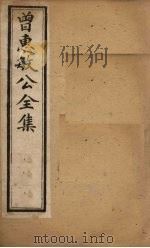 曾惠敏公全集